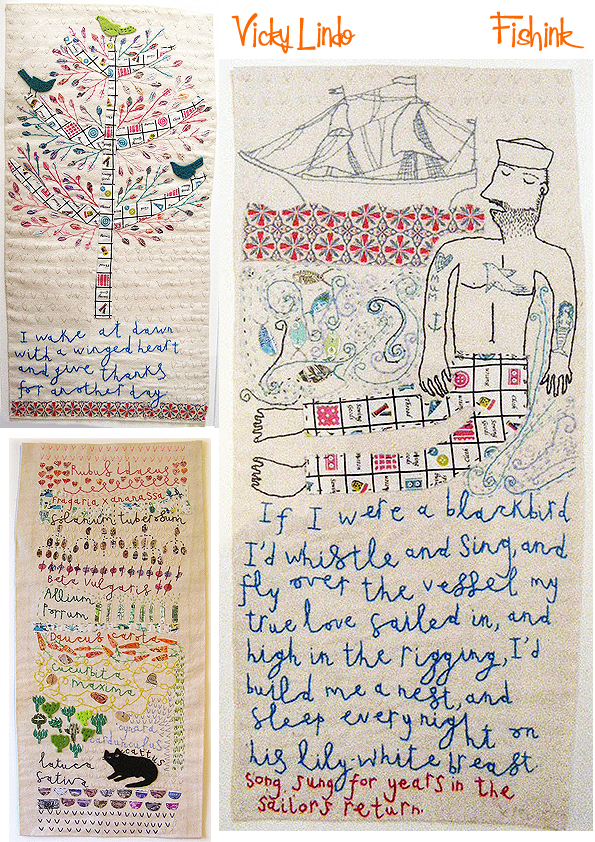 Vicky Lindo
Fishink
I wake at dawn
with a winged heart
and give thanks
for another day
Rubus Idaeus
Fragaria x ananassa
Solanum tuberosum
Beta vulgaris
Allium
Porrum
Daucus carota
Cucurbita
maxima
cardunculus
cattus
latuca
sativa
If I were a blackbird
I'd whistle and sing, and
fly over the vessel my
true love sailed in, and
high in the rigging, I'd
build me a nest, and
sleep every night on
his lily-white breast.
song sung for years in the
sailors return.